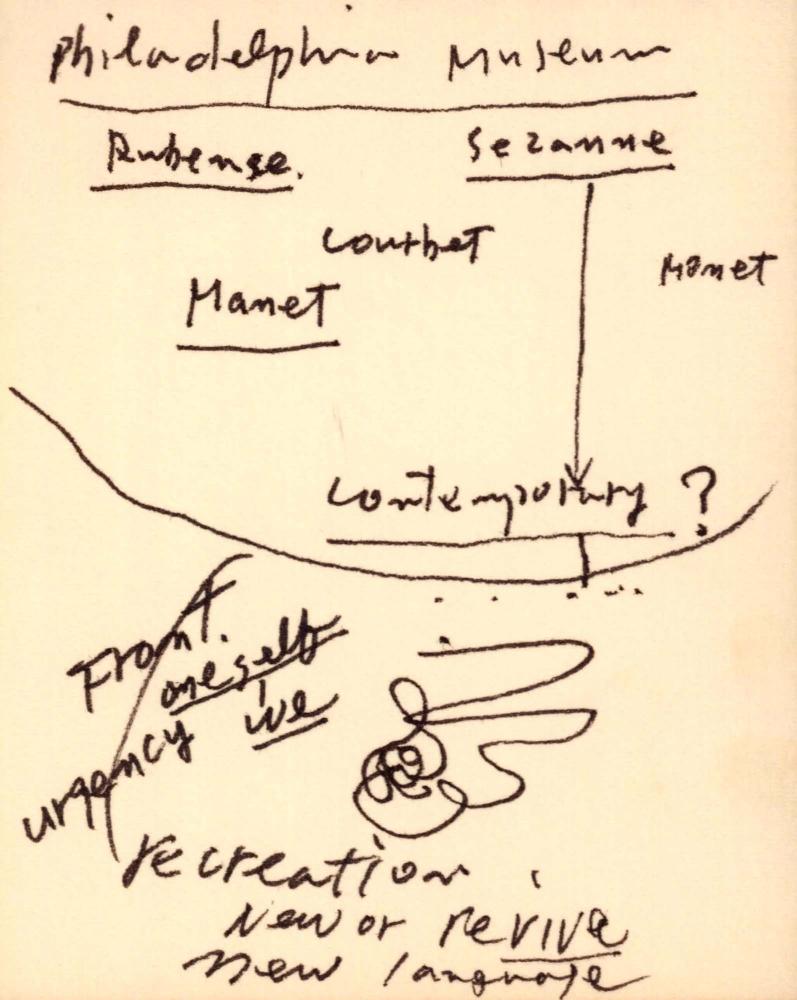 Philadelphia Museum
Rubense.
Sezanne
Courbet
Monet
Manet
Contemporary ?
Front.
oneself
urgency
we
recreation
New or revive
new language